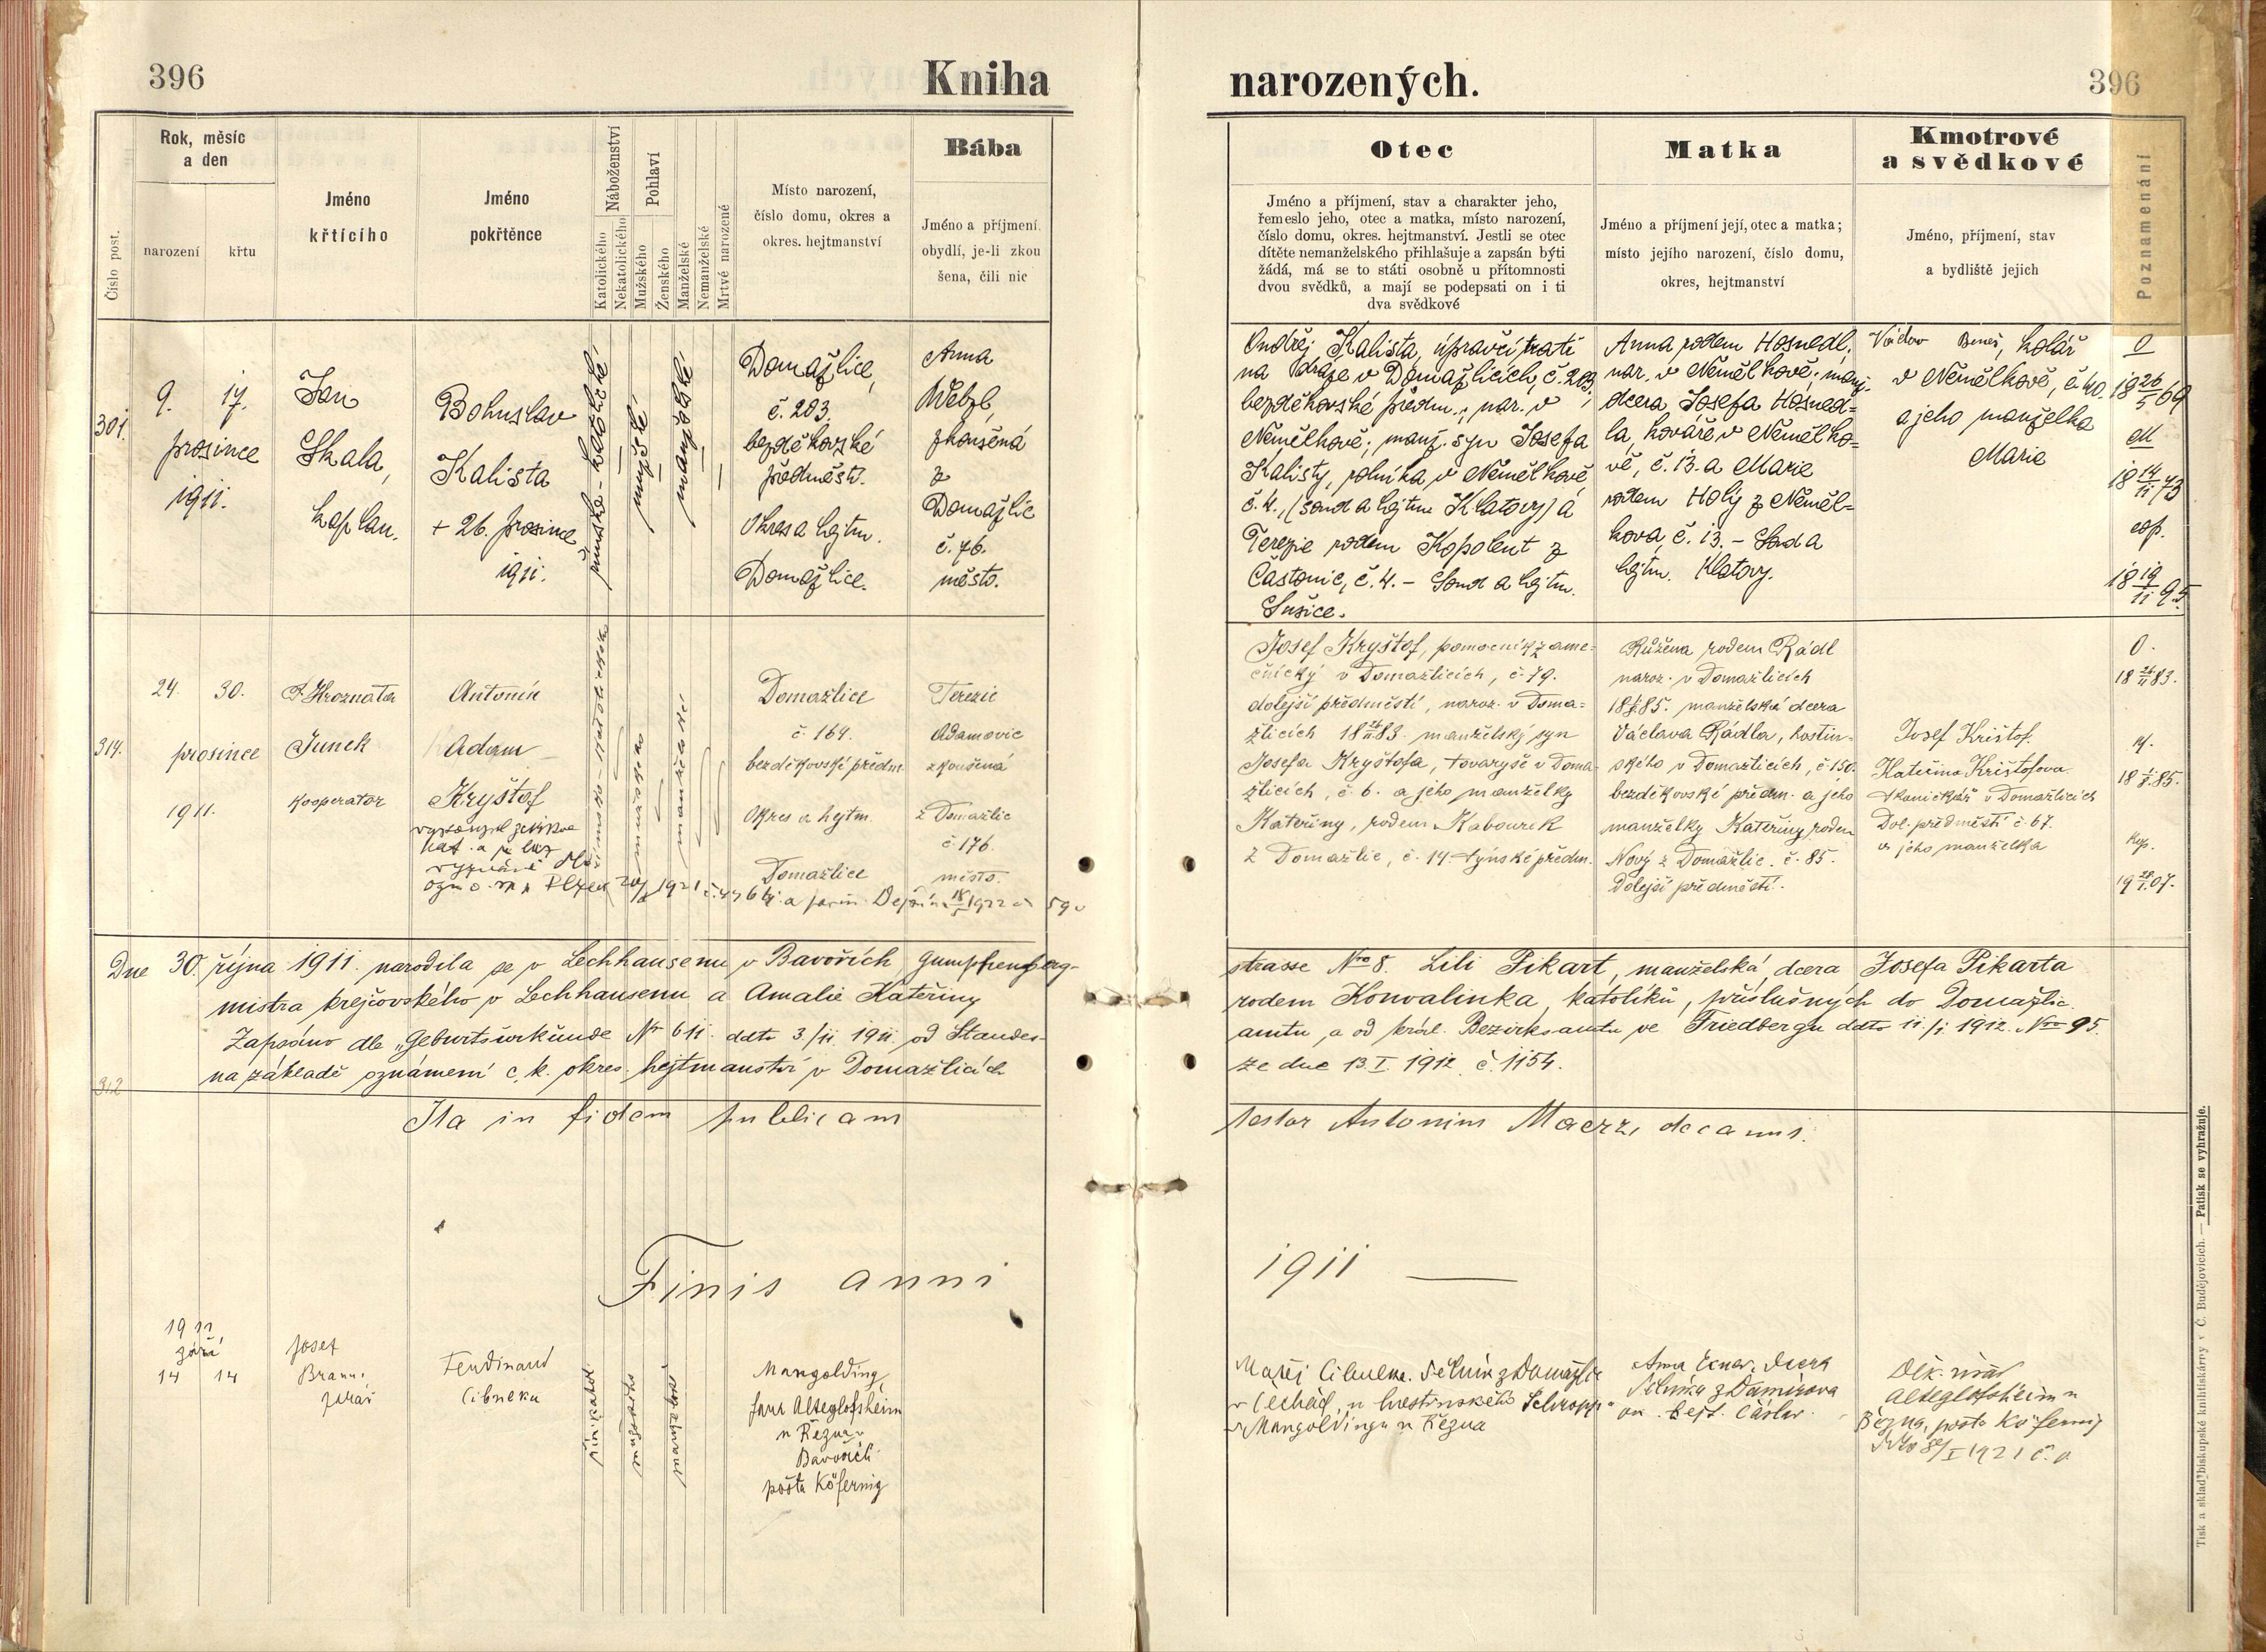 396
Kniha
narozených.
396
Číslo post.
Rok, měsíc
a den
narození
křtu
Jméno
křtícího
Jméno
pokřtěnce
Náboženství
Katolického
Nekatolického
Pohlaví
Mužského
Ženského
Manželské
Nemanželské
Mrtvé narozené
Místo narození,
číslo domu, okres a
okres. hejtmanství
Bába
Jméno a příjmení,
obydlí, je-li zkou
šena, čili nic
Otec
Jméno a příjmení, stav a charakter jeho,
řemeslo jeho, otec a matka, místo narození,
číslo domu, okres. hejtmanství. Jestli se otec
dítěte nemanželského přihlašuje a zapsán býti
žádá, má se to státi osobně u přítomnosti
dvou svědků, a mají se podepsati on i ti
dva svědkové
Matka
Jméno a příjmení její, otec a matka;
místo jejího narození, číslo domu,
okres, hejtmanství
Kmotrové
a svědkové
Jméno, příjmení, stav
a bydliště jejich
Poznamenání
301.
9. 17.
prosince
1911.
Jan
Skala,
kaplan.
Bohuslav
Kalista
+ 26. prosince
1911.
římsko-katolické
mužské
manželské
Domažlice,
č. 203.
bezděkovské
předměstí.
Okres a hejtm.
Domažlice.
Anna
Webzl,
zkoušená
z
Domažlic
č. 76.
město.
Ondřej Kalista, úpravčí trati
na dráze v Domažlicích, č. 203,
bezděkovské předm.; nar. v
Němělkově; manž. syn Josefa
Kalisty, rolníka v Němělkově
č. 4., (soud a hejtm. Klatovy) a
Terezie rodem Kopolent z
Častonic, č. 4. - Soud a hejtm.
Sušice.
Anna rodem Hosnedl,
nar. v Němělkově; manž.
dcera Josefa Hosned-
la, kováře v Němělko-
vě, č. 13. a Marie
rodem Holý z Něměl-
kova, č. 13. - Soud a
hejtm. Klatovy.
Václav Beneš, kolář
v Němělkově, č. 40.
a jeho manželka
Marie
O
18 26/5 69
M
18 14/11 73
cop.
18 19/11 95.
314.
24. 30.
prosince
1911.
P. Hroznata
Junek
kooperator
Antonín
Adam
Kryštof
vystoupil z církve
kat. a je bez
vyznání
římsko-katolické
mužské
manželské
Domažlice
č. 164.
bezděkovské předm.
Okres a hejtm.
Domažlice
Terezie
Adamovic
zkoušená
z Domažlic
č. 176.
město.
Josef Kryštof, pomocník zame-
čnický v Domažlicích, č. 79.
dolejší předměstí, naroz. v Doma-
žlicích 18 26/11 83. manželský syn
Josefa Kryštofa, tovaryše v Doma-
žlicích, č. 6. a jeho manželky
Kateřiny, rodem Kabourek
z Domažlic, č. 14. týnské předm.
Růžena rodem Rádl
naroz. v Domažlicích
manželská dcera
Václava Rádla, hostin-
ského v Domažlicích, č. 150.
bezděkovské předm. a jeho
manželky Kateřiny, rodem
Nový z Domažlic. č. 85.
Dolejší předměstí.
Josef Krištof.
Kateřina Krištofova
v Domažlicích
Dol. předměstí č. 67.
a jeho manželka
O.
18 26/11 83.
M.
kop.
19 28/1 07.
Dne 30. října 1911. narodila se v Lechhausenu v Bavořích Gumpfenberg-
strasse Nro 8. Lili Pikart, manželská dcera Josefa Pikarta
mistra krejčovského v Lechhausenu a Amalie Kateřiny
rodem Konvalinka, katolíků, příslušných do Domažlic.
Zapsáno dle „Geburtsurkunde Nr 611. ddto 3./11. 1911. od Standes-
amtu, a od král. Bezirksamtu ve Friedbergu ddto 11./1. 1912. Nro 95.
na základě oznámení c. k. okres. hejtmanství v Domažlicích
ze dne 13. I. 1912 č. 1154.
312
Ita in fidem publicam
testor Antonius Maerz, decanus.
Finis anni
1911 —
1911
září
14 14
Josef
Braun,
farář
Ferdinand
Cibulka
řím. katol.
mužské
manželské
Mangolding,
fara Alteglofsheim
u Řezna v
Bavořích
pošta Köfering
Matěj Cibulka, dělník z Domažlic
v Čechách, u hostinského Schropp
v Mangoldingu u Řezna
Anna, dcera
dělníka z Damírova
ok. hejt. Čáslav.
Děk. úřad
Alteglofsheim u
Řezna, pošta Köfering
Tisk a sklad biskupské knihtiskárny v Č. Budějovicích. — Patisk se vyhražuje.